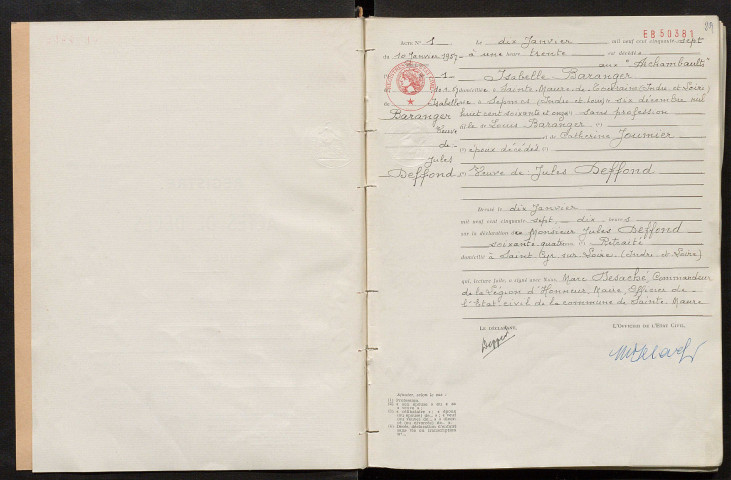 EB 50381
Acte N° 1 Le dix Janvier mil neuf cent cinquante sept
du 10 Janvier 1957 à une heure trente est décédée
aux "Archambaults"
1 Isabelle Baranger
domiciliée à Sainte Maure de Touraine (Indre et Loire)
Isabelle née à Sepmes (Indre et Loire) six décembre mil
Baranger huit cent soixante et onze sans profession
Veuve fille de Louis Baranger
de et de Catherine Journier
Jules époux décédés
Deffond Veuve de Jules Deffond
Dressé le dix Janvier
mil neuf cent cinquante sept dix heures
sur la déclaration de Monsieur Jules Deffond
soixante quatre ans Retraité
domicilié à Saint Cyr sur Loire (Indre et Loire)
qui, lecture faite, a signé avec Nous, Marc Desaché, Commandeur
de la Légion d'Honneur, Maire, Officier de
l'Etat civil de la commune de Sainte Maure
LE DÉCLARANT, L'OFFICIER DE L'ÉTAT CIVIL,